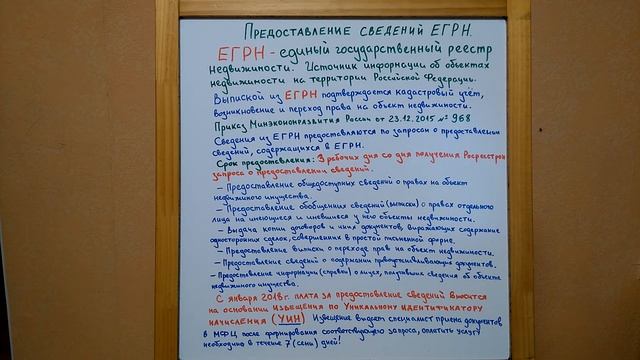 Предоставление сведений ЕГРН.
ЕГРН - единый государственный реестр
недвижимости. Источник информации об объектах
недвижимости на территории Российской Федерации.
Выпиской из ЕГРН подтверждается кадастровый учёт,
возникновение и переход права на объект недвижимости.
Приказ Минэкономразвития России от 23.12.2015 № 968
Сведения из ЕГРН предоставляются по запросам о предоставлении
сведений, содержащихся в ЕГРН.
Срок предоставления: 3 рабочих дня со дня получения Росреестром
запроса о предоставлении сведений.
- Предоставление общедоступных сведений о правах на объект
недвижимого имущества.
- Предоставление обобщенных сведений (выписки) о правах отдельного
лица на имеющиеся и имевшиеся у него объекты недвижимости.
- Выдача копии договоров и иных документов, выражающих содержание
односторонних сделок, совершенных в простой письменной форме.
- Предоставление выписки о переходе прав на объект недвижимости.
- Предоставление сведений о содержании правоустанавливающих документов.
- Предоставление информации (справки) о лицах, получивших сведения об объекте
недвижимого имущества.
С января 2018г. плата за предоставление сведений вносится
на основании извещения по Уникальному идентификатору
начисления (УИН) Извещение выдает специалист приема документов
в МФЦ после формирования соответствующего запроса, оплатить услугу
необходимо в течение 7 (семи) дней!